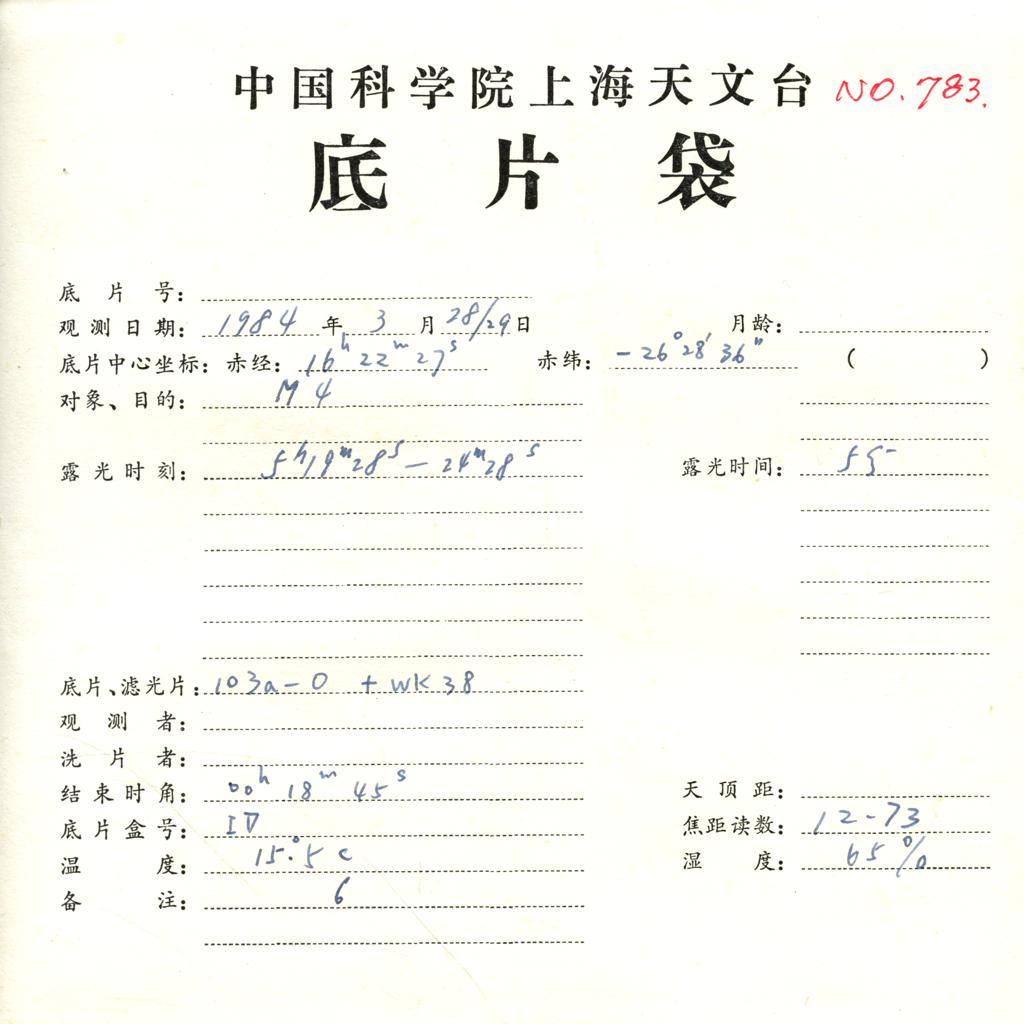 中国科学院上海天文台 NO.783.
底片袋
底片号：
观测日期：1984年3月28/29日 月龄：
底片中心坐标：赤经：16h22m27s 赤纬：-26°28′36″ ( )
对象、目的：M4
露光时刻：5h19m28s—24m28s 露光时间：
底片、滤光片：103a-O + WK38
观测者：
洗片者：
结束时角：00h18m45s 天顶距：
底片盒号：IV
焦距读数：12-73
温度：15.°5c 湿度：65%
备注：6